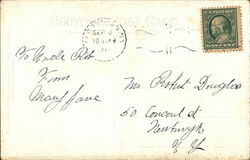 SOUVENIR POST CARD
SEP
To Uncle Rob
From
Mary Jane
Mr Robert Douglas
50 Concord st
Newburgh
N Y